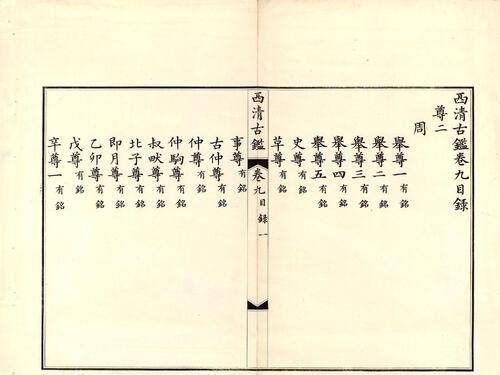 西清古鑑卷九目録
尊二
周
舉尊一 有銘
舉尊二 有銘
舉尊三 有銘
舉尊四 有銘
舉尊五 有銘
史尊 有銘
草尊 有銘
西清古鑑 卷九目録 一
事尊 有銘
古仲尊 有銘
仲尊 有銘
仲駒尊 有銘
叔㽙尊 有銘
北子尊 有銘
即月尊 有銘
乙卯尊 有銘
戊尊 有銘
辛尊一 有銘